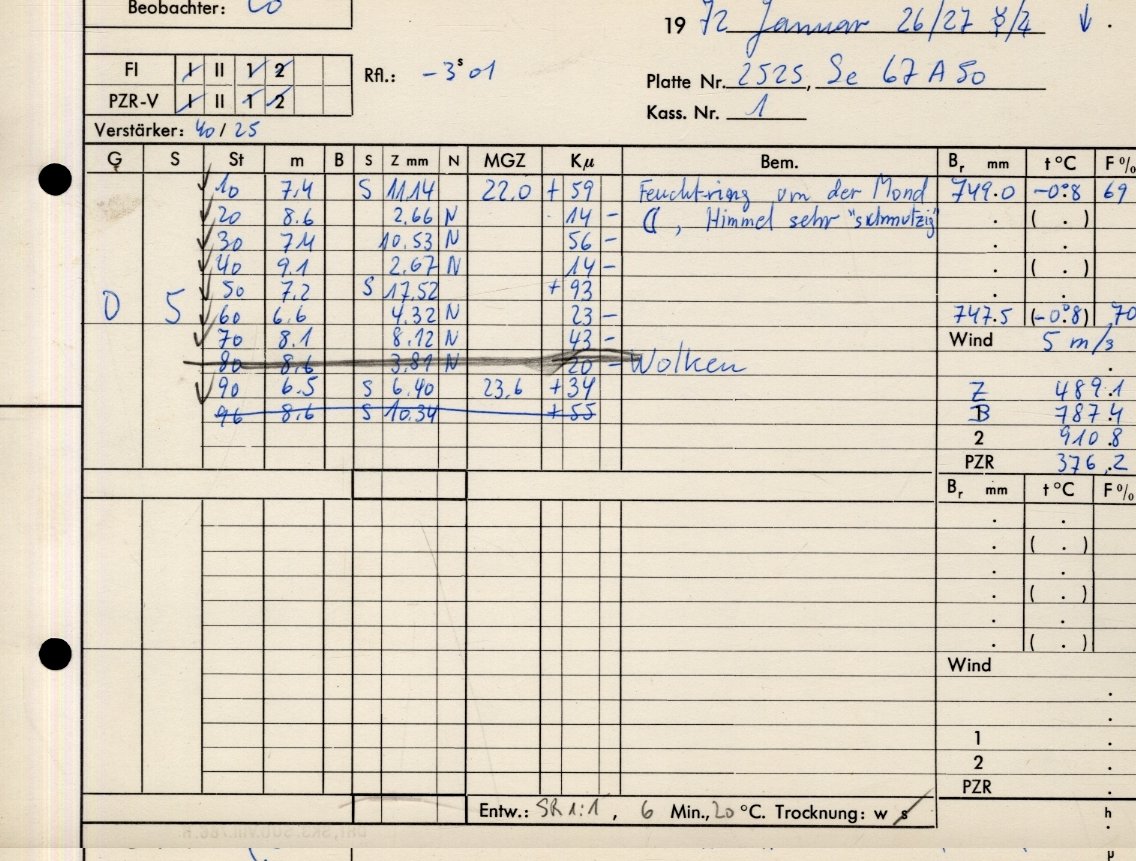 Beobachter: Lo
1972 Januar 26/27 ☿/♃ ↓ .
FI I II 1 2
Rfl.: -3ˢ01
Platte Nr. 2525, Se 67 A 50
PZR-V I II 1 2
Kass. Nr. 1
Verstärker: 40 / 25
G S St m B S Z mm N MGZ Kμ Bem. Bᵣ mm t °C F %
10 7.4 S 11.14 22.0 + 59 Feuchtring um der Mond 749.0 -0.8 69
20 8.6 2.66 N 14 - ☾, Himmel sehr "schmutzig" . ( . )
30 7.4 10.53 N 56 - . .
40 9.1 2.67 N 14 - . ( . )
0 5 50 7.2 S 17.52 + 93 . .
60 6.6 4.32 N 23 - 747.5 (-0.8) 70
70 8.1 8.12 N 43 - Wind 5 m/s
80 8.6 3.81 N 20 - Wolken .
90 6.5 S 6.40 23.6 + 34 Z 489.1
96 8.6 S 10.34 + 55 B 787.4
2 910.8
PZR 376.2
Bᵣ mm t °C F %
. .
. ( . )
. .
. ( . )
. .
. ( . )
Wind
.
.
1 .
2 .
PZR .
Entw.: SR 1:1, 6 Min., 20 °C. Trocknung: w s
h
μ